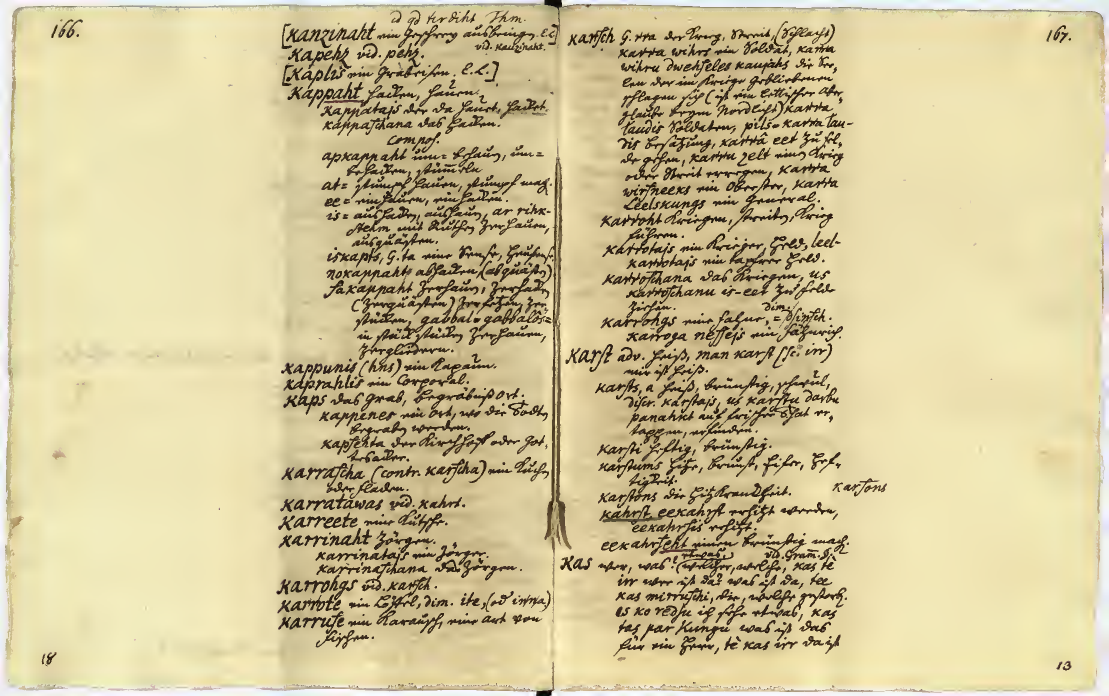 166.
id qd terdiht Ihm.
[Kanzinaht ein Geschrey ausbringen. L.L.]
vid. Kanzinaht.
Kapehz vid. pehz.
[Kaplis ein Grabeisen. L.L.]
Kappaht hacken, hauen.
Kappatajs der da hauet, hacket.
Kappaschana das Hacken.
Compos.
apkappaht um= behauen, um=
behacken, stümmeln
at= stumpf hauen, stumpf mach.
ee= einhauen, einhacken.
is= aushacken, aushauen, ar rihk=
stehm mit Ruthen zerhauen,
ausquästen.
iskapts, G. ta eine Sense, Heusense.
nokappahts abhacken (abquästen)
sakappaht zerhauen, zerhacken
(zerquästen) zerfetzen, zer
stücken, gabbalu gabbalôs=
in stück stücken zerhauen,
zergliedern.
Kappunis (hns) ein Kapaun.
Kaprahlis ein Corporal.
Kaps das Grab, Begräbniß Ort.
Kappenes ein Ort, wo die Todten
begraben werden.
Kapsehta der Kirchhoff oder Got=
tesacker.
Karrascha (contr. Karscha) ein Kuchen
oder Fladen.
Karratawas vid. Kahrt.
Karreete eine Kutsche.
Karrinaht zörgen.
Karrinatajs ein Zörger.
Karrinaschana das Zörgen.
Karrohgs vid. Karsch.
Karrote ein Löffel, dim. ite, (od irma)
Karruse ein Karausch, eine art von
Fischen.
18
167.
Karsch G. rra der Krieg, Streit, (Schlacht)
Karra wihrs ein Soldat, Karra
wihru dwehseles kaujahs die See=
len der im Kriege gebliebenen
schlagen sich (ist ein Lettischer Aber=
glaube beym Nordlicht) Karra
laudis Soldaten, pils=Karra lau=
dis Besatzung, Karrâ eet zu Fel=
de gehen, Karru zelt einen Krieg
oder Streit erregen, Karra
wirsneeks ein Oberster, Karra
Leelskungs ein General.
Karroht Kriegen, streiten, Krieg
führen.
Karrotajs ein Krieger, Held, leel=
karrotajs ein tapfrer Held.
Karroschana das Kriegen, us
karroschanu is-eet zu Felde
ziehen.
dim.
Karrohgs eine Fahne, = dsinsch.
Karroga nessejs ein Fähnrich.
Karst adv. heiß, man karst (sc. irr)
mir ist heiß.
Karsts, a heiß, brünstig, schwül,
discr. Karstajs, us karstu darbu
panahkt auf frischer That er=
tappen, erfinden.
Karsti heftig, brünstig.
Karstums Hitze, Brunst, Eifer, Hef=
tigkeit.
Karstons die Hitz Krankheit. Karsons
Kahrst, eekahrst erhitzt werden,
eekahrsis erhitzt.
eekahrseht einen brünstig mach.
etwas, vid. Gramm.
Kas wer, was? (welcher, welche, Kas te
irr wer ist da? was ist da, tee
kas mirruschi, die, welche gestorb.
es ko redsu ich sehe etwas, kas
tas par Kungu was ist das
für ein Herr, tê kas irr da ist
13